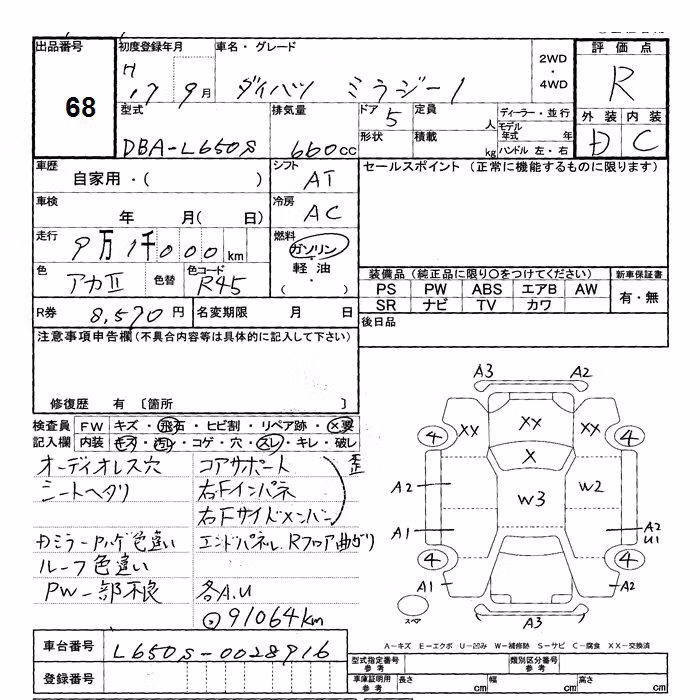 出品番号
68
初度登録年月
H
17 9 月
車名・グレード
ダイハツ ミラジーノ
2WD
・
4WD
評 価 点
R
外 装 内 装
D C
型式
DBA-L650S
排気量
660cc
ドア 5
定員 人
形状
積載 kg
ディーラー・並行
モデル年式 年
ハンドル 左・右
車歴
自家用・( )
シフト
AT
車検
年 月( 日)
冷房
AC
走行
9万1千000km
燃料
ガソリン
軽 油
( ・ )
色
アカⅡ
色替
色コード
R45
R券 8,570 円
名変期限 月 日
セールスポイント (正常に機能するものに限ります)
装備品(純正品に限り〇をつけてください)
PS PW ABS エアB AW
SR ナビ TV カワ
新車保証書
有・無
後日品
注意事項申告欄(不具合内容等は具体的に記入して下さい)
修復歴 有 〔箇所 〕
検査員記入欄
FW キズ・飛石・ヒビ割・リペア跡・×要
内装 キズ・汚レ・コゲ・穴・スレ・キレ・破レ
オーディオレス穴
シートヘタリ
ミラー 色違い
ルーフ色違い
PW一部不良
コアサポート
右Fインパネ
右Fサイドメンバー
歪
エンドパネル Rフロア曲がり
各A.U
91064km
A3 A2
XX XX XX
4 4
X
A2 W3 W2
A1 A2
U1
4 4
A1 A2
A3
スペア
A-キズ E-エクボ U-凹み W-補修跡 S-サビ C-腐食 XX-交換済
車台番号
L650S-0028916
登録番号
型式指定番号
参考
類別区分番号
参考
車庫証明用
参考
長さ cm
幅 cm
高さ cm